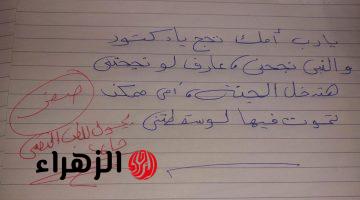 يارب أمك تنجح يا دكتور
والنبي نجحني، عارف لو نجحتني
هتدخل الجنة، أمي ممكن
تموت فيها لو سقطتني
صفر
يحول للطب النفسي
الزهراء